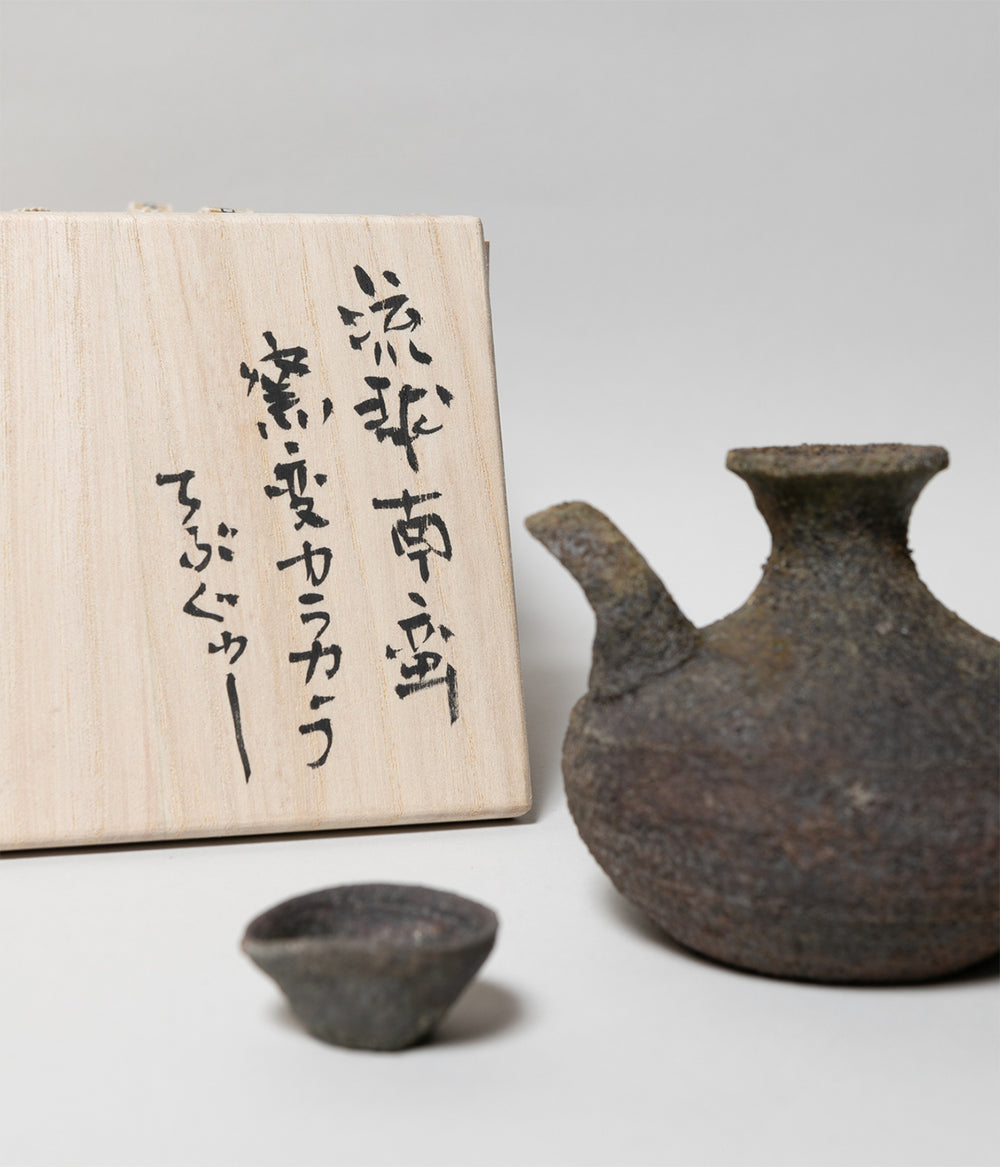 流球南蛮
窯変カラカラ
ちぶぐゎー